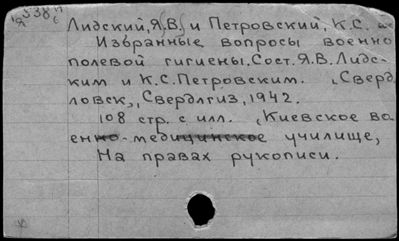 Лидский, Я.В. и Петровский, К.С.
Избранные вопросы военно
полевой гигиены. Сост. Я.В. Лидс-
ким и К.С. Петровским. Сверд
ловск, Свердлгиз, 1942.
108 стр. с илл. Киевское во
енно-медицинское училище,
На правах рукописи.